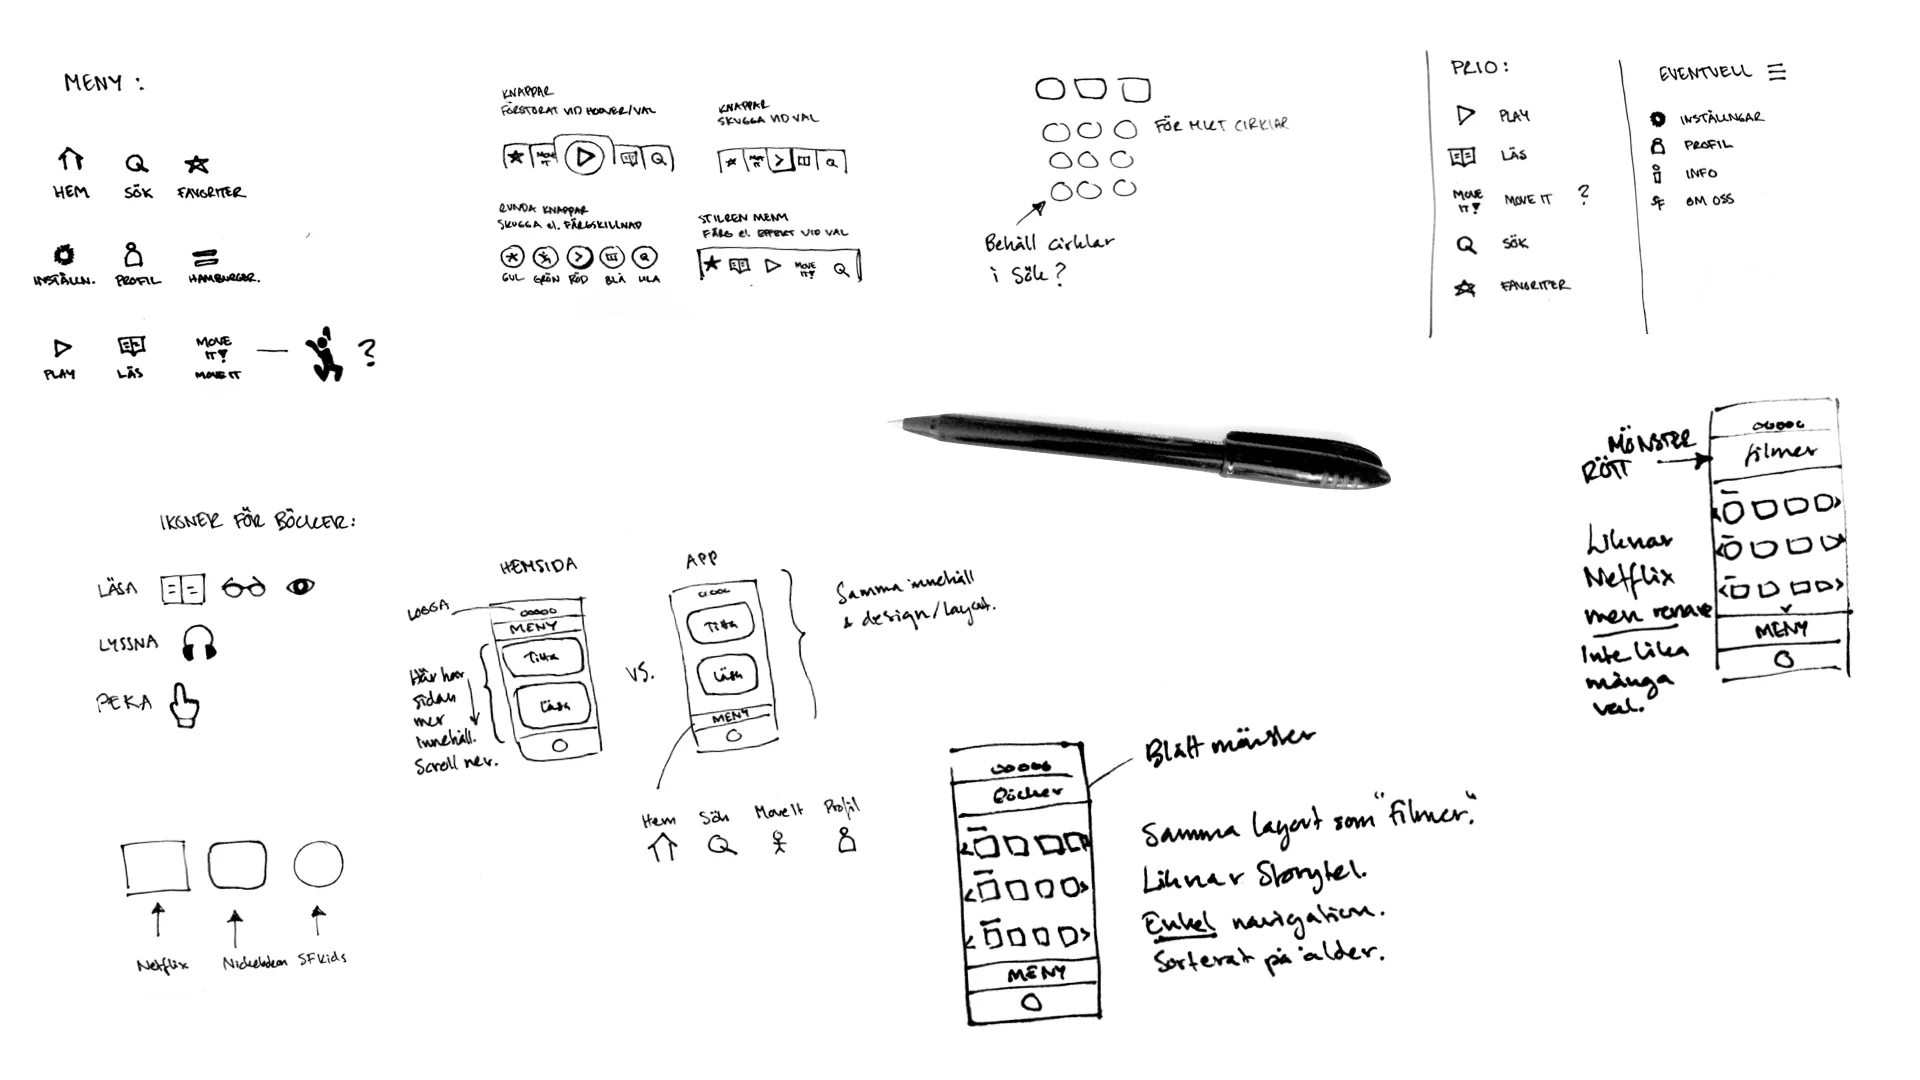 MENY :
HEM SÖK FAVORITER
INSTÄLLN. PROFIL HAMBURGER.
MOVE
IT!
PLAY LÄS MOVE IT
?
KNAPPAR
FÖRSTORAT VID HOOVER/VAL
MOVE
IT
KNAPPAR
SKUGGA VID VAL
MOVE
IT
RUNDA KNAPPAR
SKUGGA el. FÄRGSKILLNAD
GUL GRÖN RÖD BLÅ LILA
STILREN MENY
FÄRG el. EFFEKT VID VAL
MOVE
IT!
FÖR MKT CIRKLAR
Behåll cirklar
i Sök?
PRIO:
PLAY
LÄS
MOVE
IT! MOVE IT ?
SÖK
FAVORITER
EVENTUELL
INSTÄLLNGAR
PROFIL
INFO
SF OM OSS
IKONER FÖR BÖCKER:
LÄSA
LYSSNA
PEKA
Netflix Nickelodeon SFKids
HEMSIDA
LOGGA
MENY
Titta
Läsa
Här har
sidan
mer
innehåll.
Scroll ner.
VS.
APP
Titta
Läsa
MENY
Samma innehåll
& design/layout.
Hem Sök MoveIt Profil
Böcker
MENY
Blått mönster
Samma layout som "filmer".
Liknar Storytel.
Enkel navigation.
Sorterat på ålder.
MÖNSTER
RÖTT
filmer
MENY
Liknar
Netflix
men renare
Inte lika
många
val.